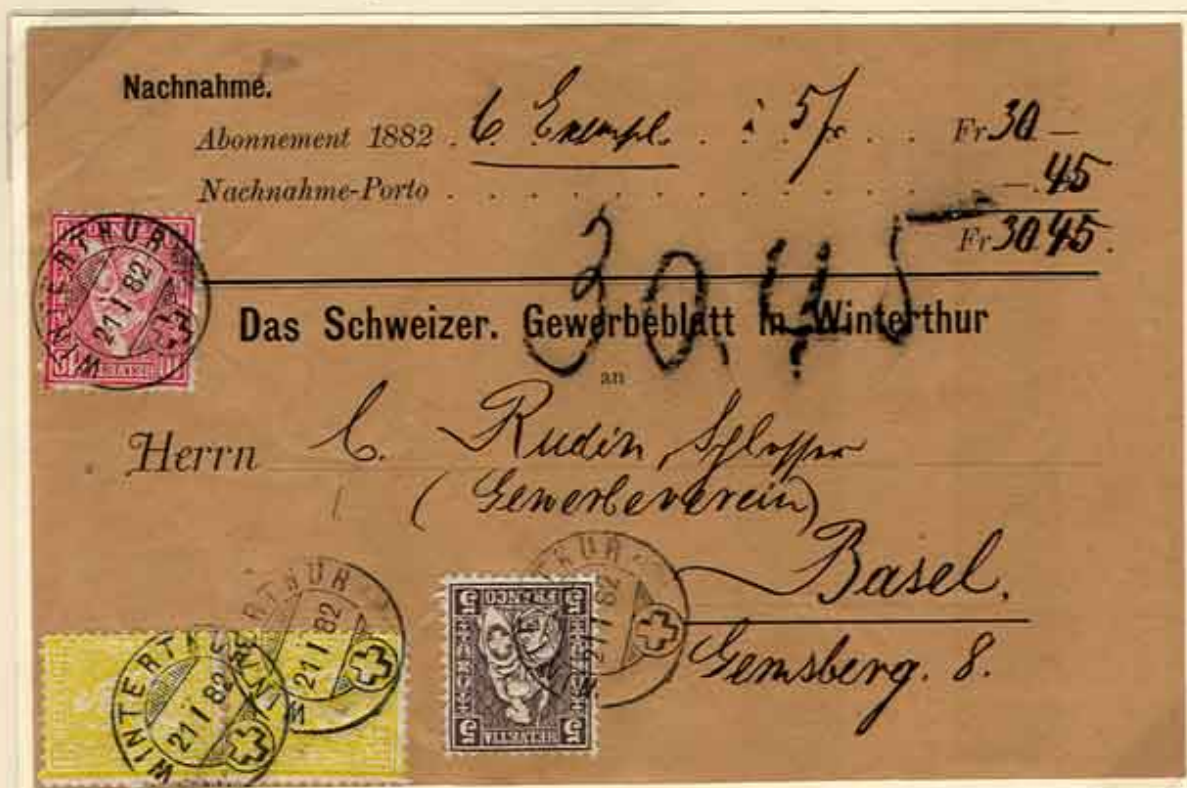 Nachnahme.
Abonnement 1882 . 6 Exempl. . . à 5 fr . . Fr 30 —
Nachnahme-Porto . . . . . . . . . . . . . — . 45
Fr 30.45.
30,45
Das Schweizer. Gewerbeblatt in Winterthur
an
Herrn C. Rudin, Schlosser
(Gewerbeverein)
Basel.
Gemsberg. 8.
WINTERTHUR
21 I 82
WINTERTHUR
21 I 82
WINTERTHUR
21 I 82
5 FRANCO 5
5 HELVETIA 5
21 I 82